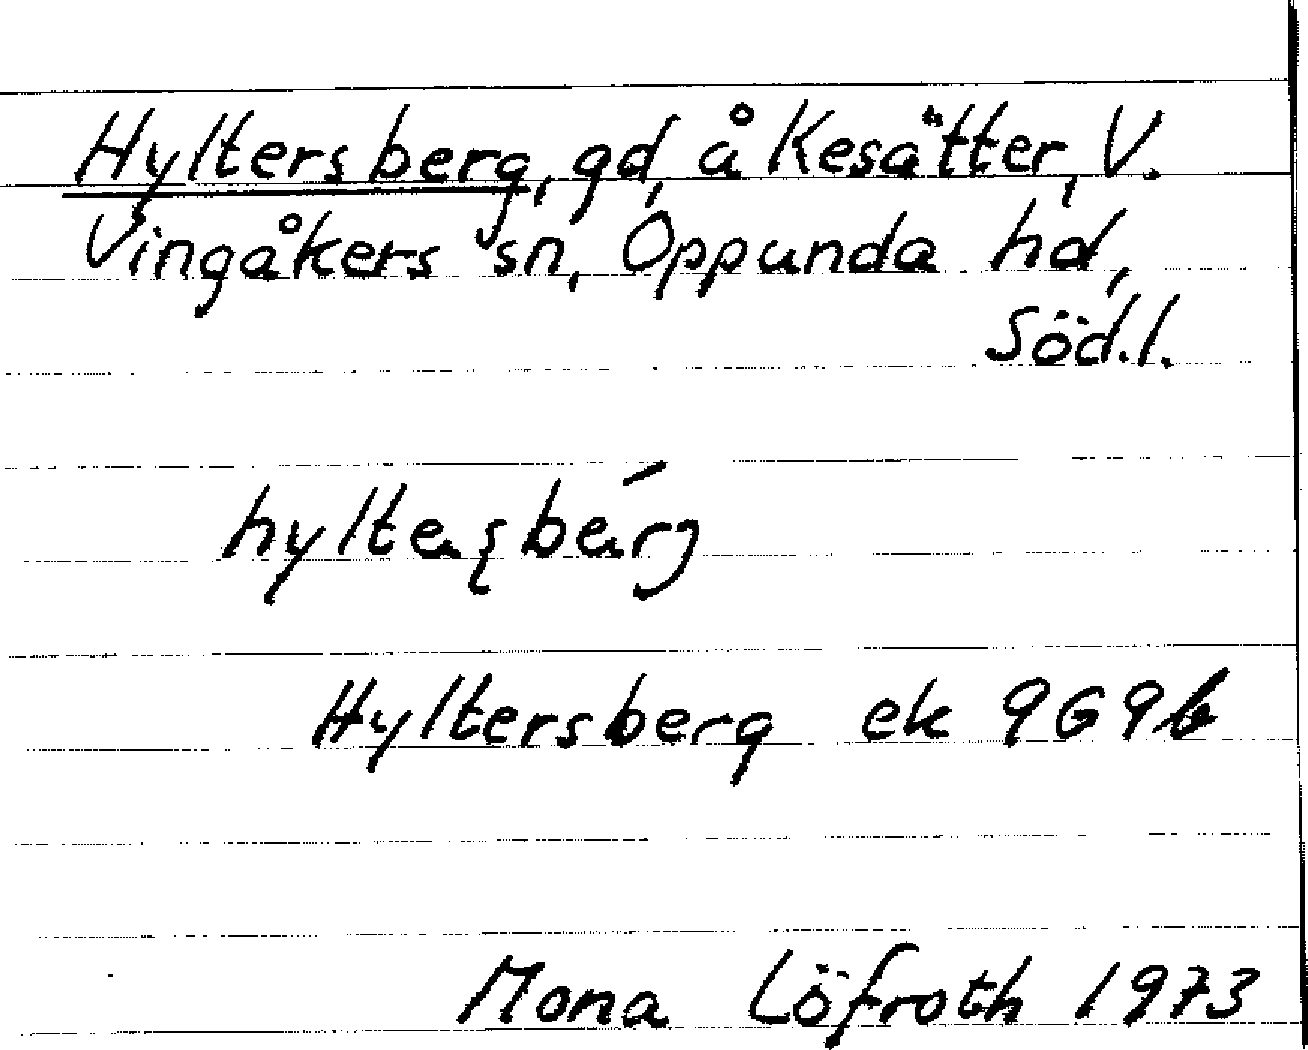 Hyltersberg, gd, å Kesätter, V.
Vingåkers sn, Oppunda hd,
Söd.l.
Hyltersberg ek 9G9b
Mona Löfroth 1973